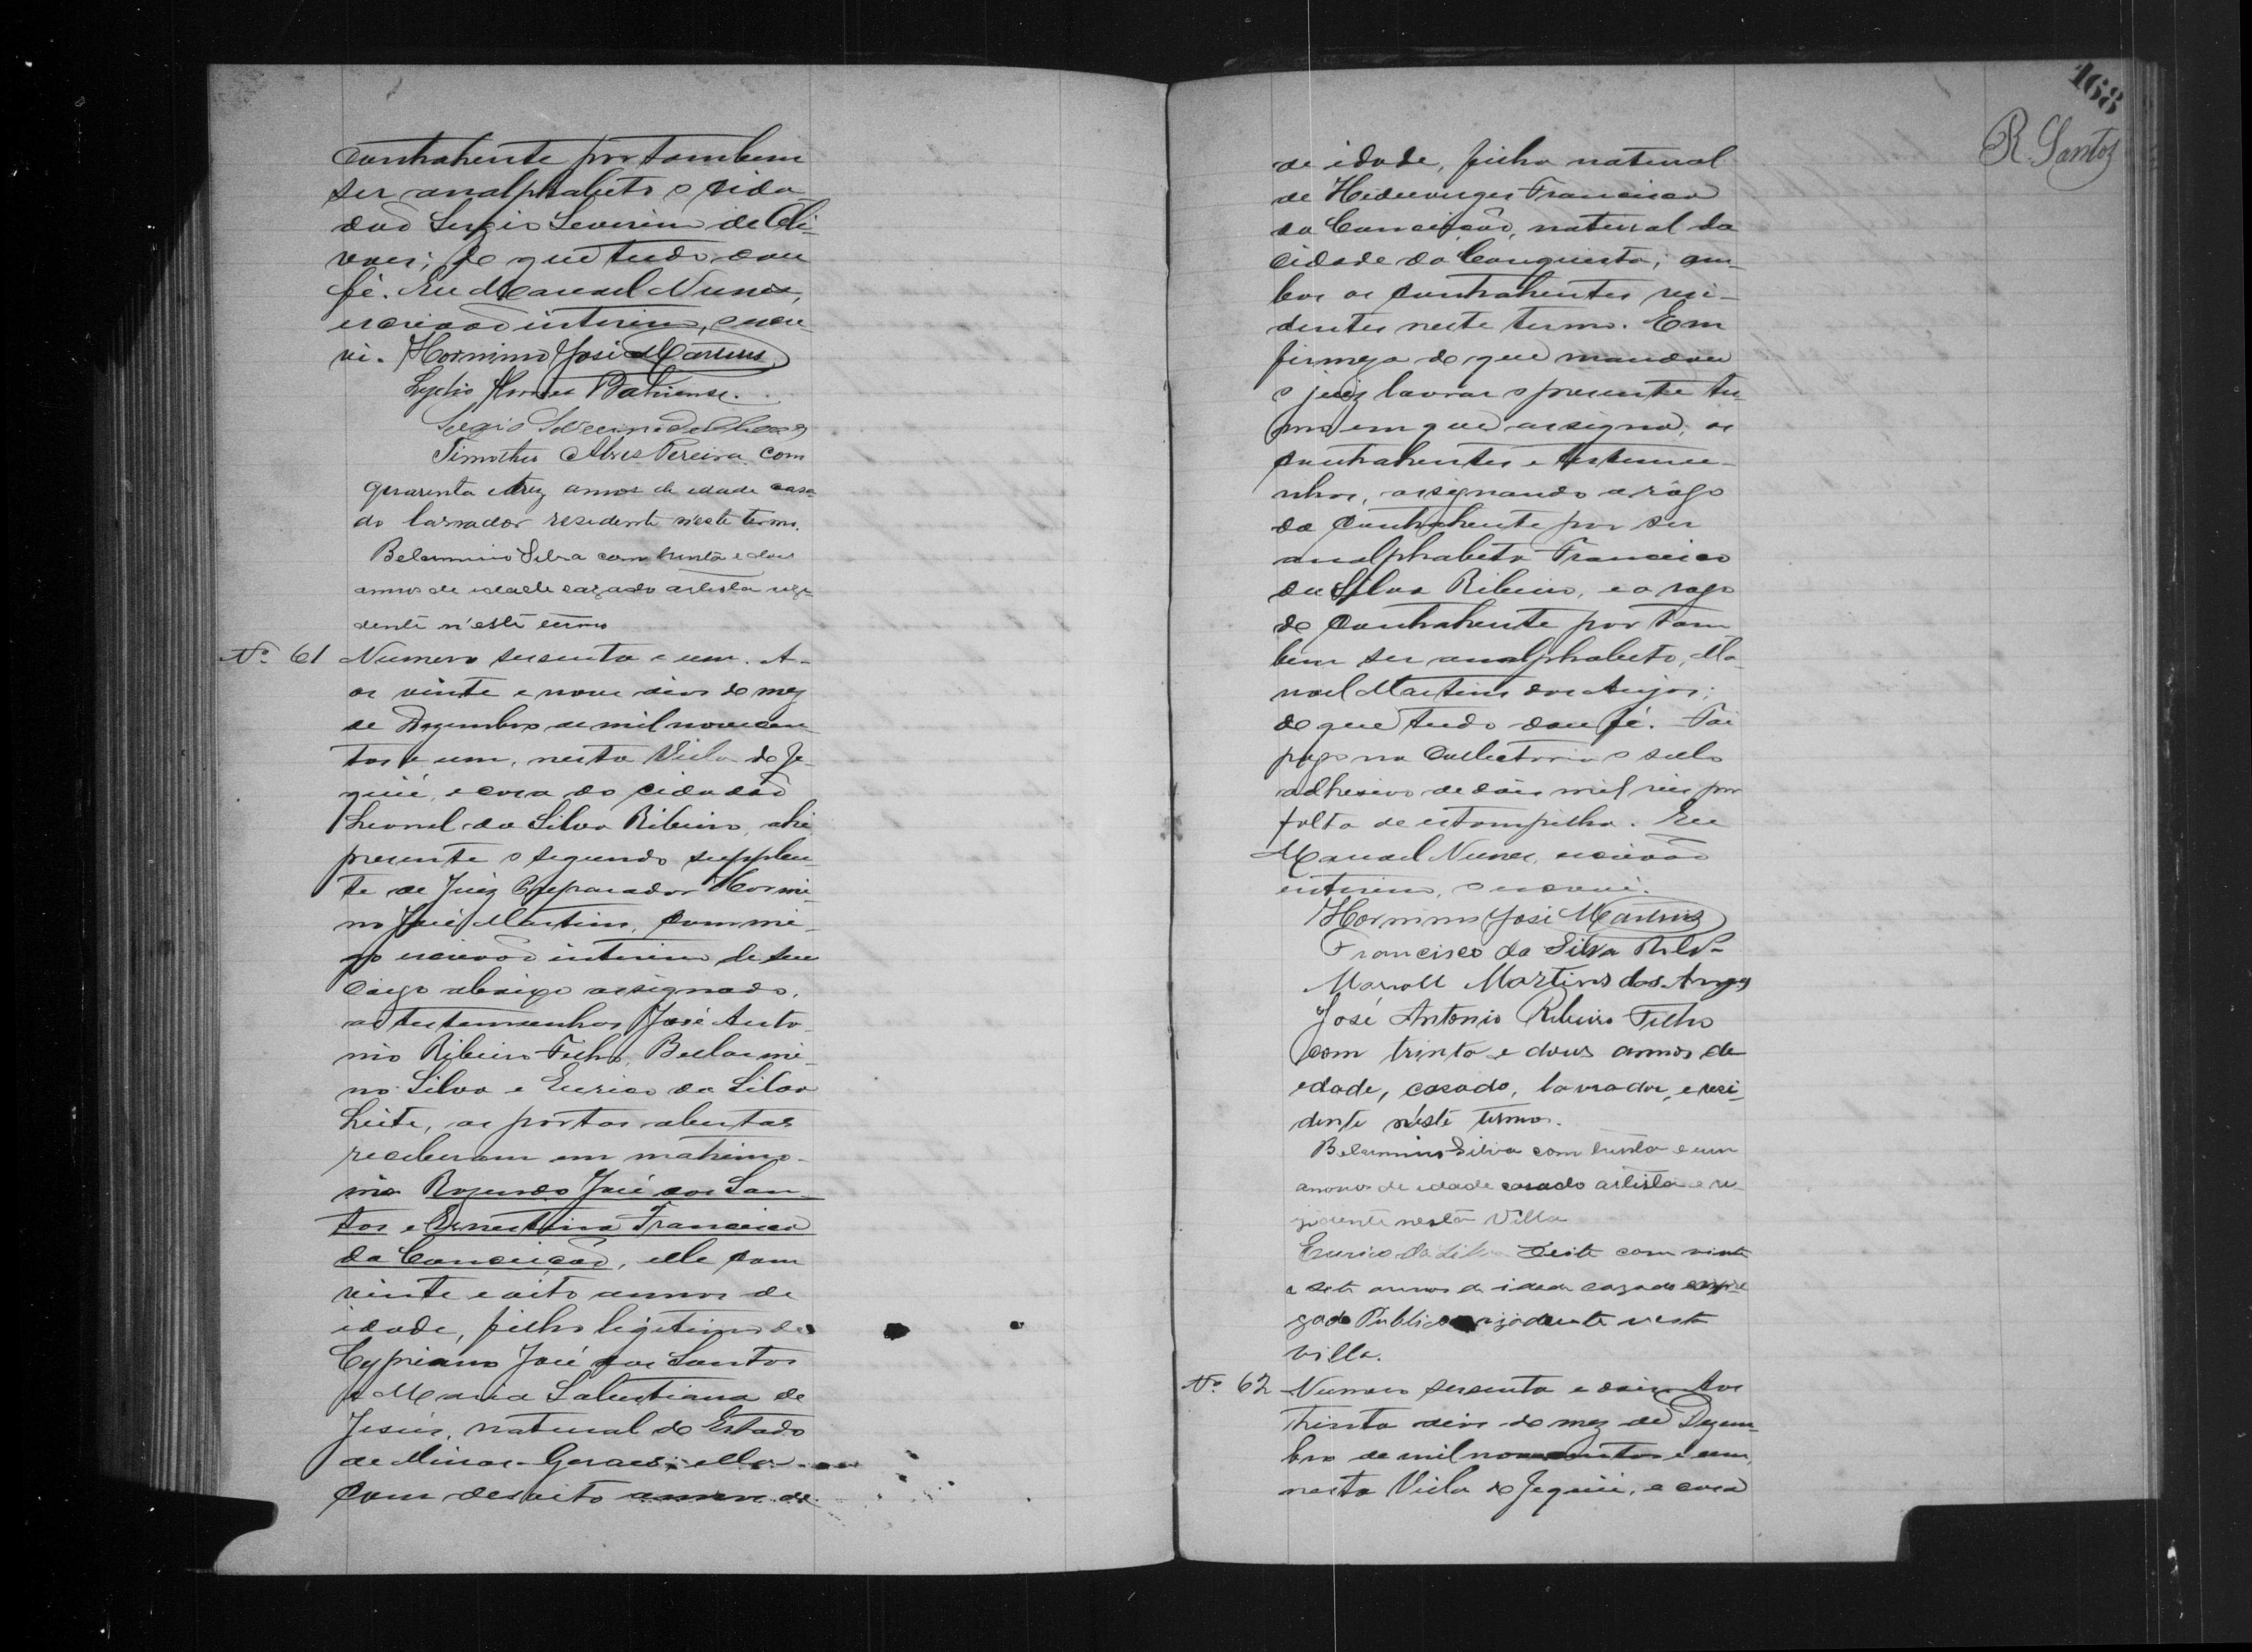 contrahente por tambem
ser analphabeto o cida-
dão Sergio Severino de Oli-
veira; de que tudo dou
fé. Eu Manoel Nunes,
escrivão interino, escre-
vi. Hormino José Martins
Lydio Bahiense.
Sergio Severino de
Timotheo Alves Pereira com
quarenta e trez annos de edade casa
do lavrador residente n'este termo.
Belarmino Silva com trinta e dous
annos de idade cazado artista rezi-
dente n'este termo
Nº 61 Numero sessenta e um. A-
os vinte e nove dias do mez
de Dezembro de mil novecen-
tos e um, nesta Villa de Je-
quié, e casa do cidadão
Leonel da Silva Ribeiro, ahi
presente o segundo supplen-
te de Juiz Preparador Hormi-
no José Martins, commi-
go escrivão interino de seu
cargo abaixo assignado,
as testemunhas José Anto-
nio Ribeiro Filho, Bellarmi-
no Silva e Eurico da Silva
Leite, as portas abertas
receberam em matrimo-
nio Rozendo José dos San-
tos e Ernestina Francisca
da Conceição, elle com
vinte e oito annos de
idade, filho legitimo de
Cypriano José dos Santos
e Maria Salustiana de
Jesús, natural do Estado
de Minas-Geraes; ella
com desoito annos de
168
R. Santos
de idade, filha natural
de Francisca
da Conceição, natural da
cidade da Conquista; am-
bos os contrahentes resi-
dentes neste termo. Em
firmeza do que mandou
o juiz lavrar o presente ter-
mo em que assigna, os
contrahentes e testemu-
nhas, assignando a rôgo
da contrahente por ser
analphabeta Francisco
da Silva Ribeiro, e a rogo
do contrahente por tam
bem ser analphabeto, Ma-
noel Martins dos Anjos;
do que tudo dou fé. Foi
pago na Collectoria o sello
adhesivo de dois mil reis por
falta de estampilha. Eu
Manoel Nunes, escrivão
interino, o escrevi.
Hormino José Martins
Francisco da Silva Ribrº
Manoel Martins dos Anjos
José Antonio Ribeiro Filho
com trinta e dous annos de
edade, casado, lavrador, e resi-
dente n'este termo.
Belarmino Silva com trinta e um
annos de idade casado artista e re-
zidente nesta Villa
Eurico da Silva Leite com vinte
e sete annos de idade cazado empre
gado Publico rezidente nesta
villa.
Nº 62 Numero sessenta e dois. Aos
trinta dias do mez de Dezem-
bro de mil novecentos e um,
nesta Villa de Jequié, e casa